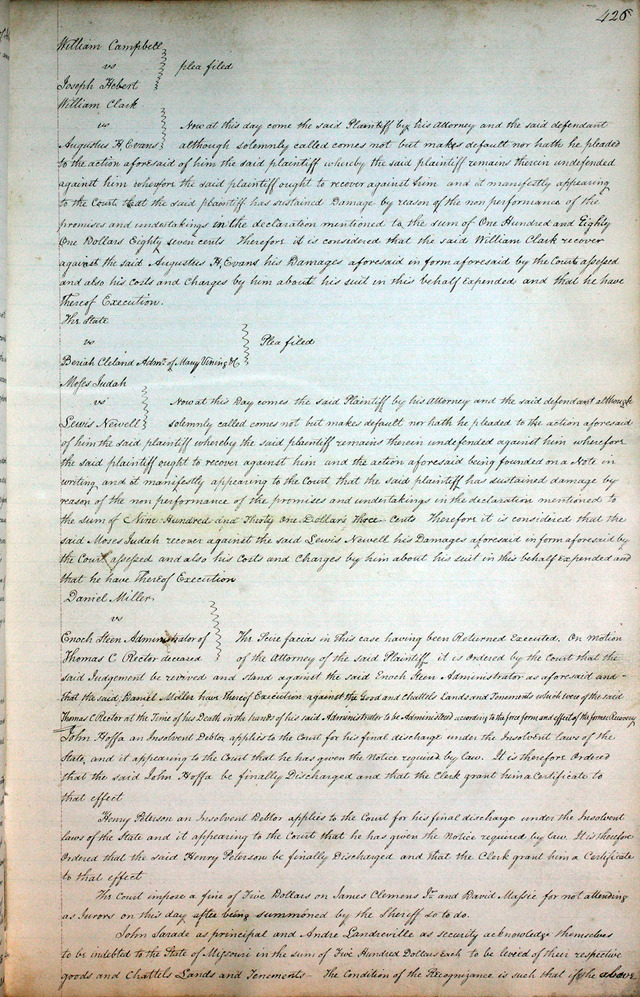 426
William Campbell
vs
plea filed
Joseph Hebert
William Clark
vs
Now at this day come the said Plaintiff by his Attorney and the said defendant
Augustus H, Evans
although solemnly called comes not but makes default nor hath he pleaded
to the action aforesaid of him the said plaintiff whereby the said plaintiff remains therein undefended
against him wherefore the said plaintiff ought to recover against him and it manifestly appearing
to the Court that the said plaintiff has sustained Damage by reason of the non performance of the
promises and undertakings in the declaration mentioned to the sum of One Hundred and Eighty
One Dollars Eighty seven cents Therefore it is considered that the said William Clark recover
against the said Augustus H, Evans his Damages aforesaid in form aforesaid by the Court assessed
and also his costs and Charges by him about his suit in this behalf expended and that he have
thereof Execution.
The State
vs
Plea filed
Beriah Cleland Admr. of Mary Vining &c
Moses Judah
vs
Now at this Day comes the said Plaintiff by his Attorney and the said defendant although
Lewis Newell
solemnly called comes not but makes default nor hath he pleaded to the action aforesaid
of him the said plaintiff whereby the said plaintiff remains therein undefended against him wherefore
the said plaintiff ought to recover against him and the action aforesaid being founded on a Note in
writing, and it manifestly appearing to the Court that the said plaintiff has sustained damage by
reason of the non performance of the promises and undertakings in the declaration mentioned to
the Sum of Nine Hundred and Thirty One Dollars Three Cents Therefore it is considered that the
said Moses Judah recover against the said Lewis Newell his Damages aforesaid in form aforesaid by
the Court assessed and also his Costs and Charges by him about his suit in this behalf Expended and
that he have thereof Execution
Daniel Miller.
vs
Enoch Steen Administrator of
The Scire facias in this case having been Returned Executed. On motion
Thomas C Rector deceased
of the Attorney of the said Plaintiff it is Ordered by the Court that the
said Judgement be revived and stand against the said Enoch Steen Administrator as aforesaid and
that the said Daniel Miller have thereof Execution against the Good and Chattels Lands and Tenements which were of the said
Thomas C Rector at the Time of his Death in the hands of his said Administrator to be Administered according to the force form and effect of the former Recovery
John Hoffa an Insolvent Debtor applies to the Court for his final discharge under the Insolvent laws of the
State, and it appearing to the Court that he has given the Notice required by law. It is therefore Ordered
that the said John Hoffa be finally Discharged and that the Clerk grant him a Certificate to
that effect
Henry Peterson an Insolvent Debtor applies to the Court for his final discharge under the Insolvent
laws of the State and it appearing to the Court that he has given the Notice required by law. It is therefore
Ordered that the said Henry Peterson be finally Discharged and that the Clerk grant him a Certificate
to that effect
The Court impose a fine of Five Dollars on James Clemens Jr. and David Massie for not attending
as Jurors on this day after being summoned by the Sheriff so to do.
John Sarade as principal and Andre Landreville as security acknowledge themselves
to be indebted to the State of Missouri in the sum of Five Hundred Dollars Each to be levied of their respective
goods and Chattels Lands and Tenements - The Condition of the Recognizance is such that if the above